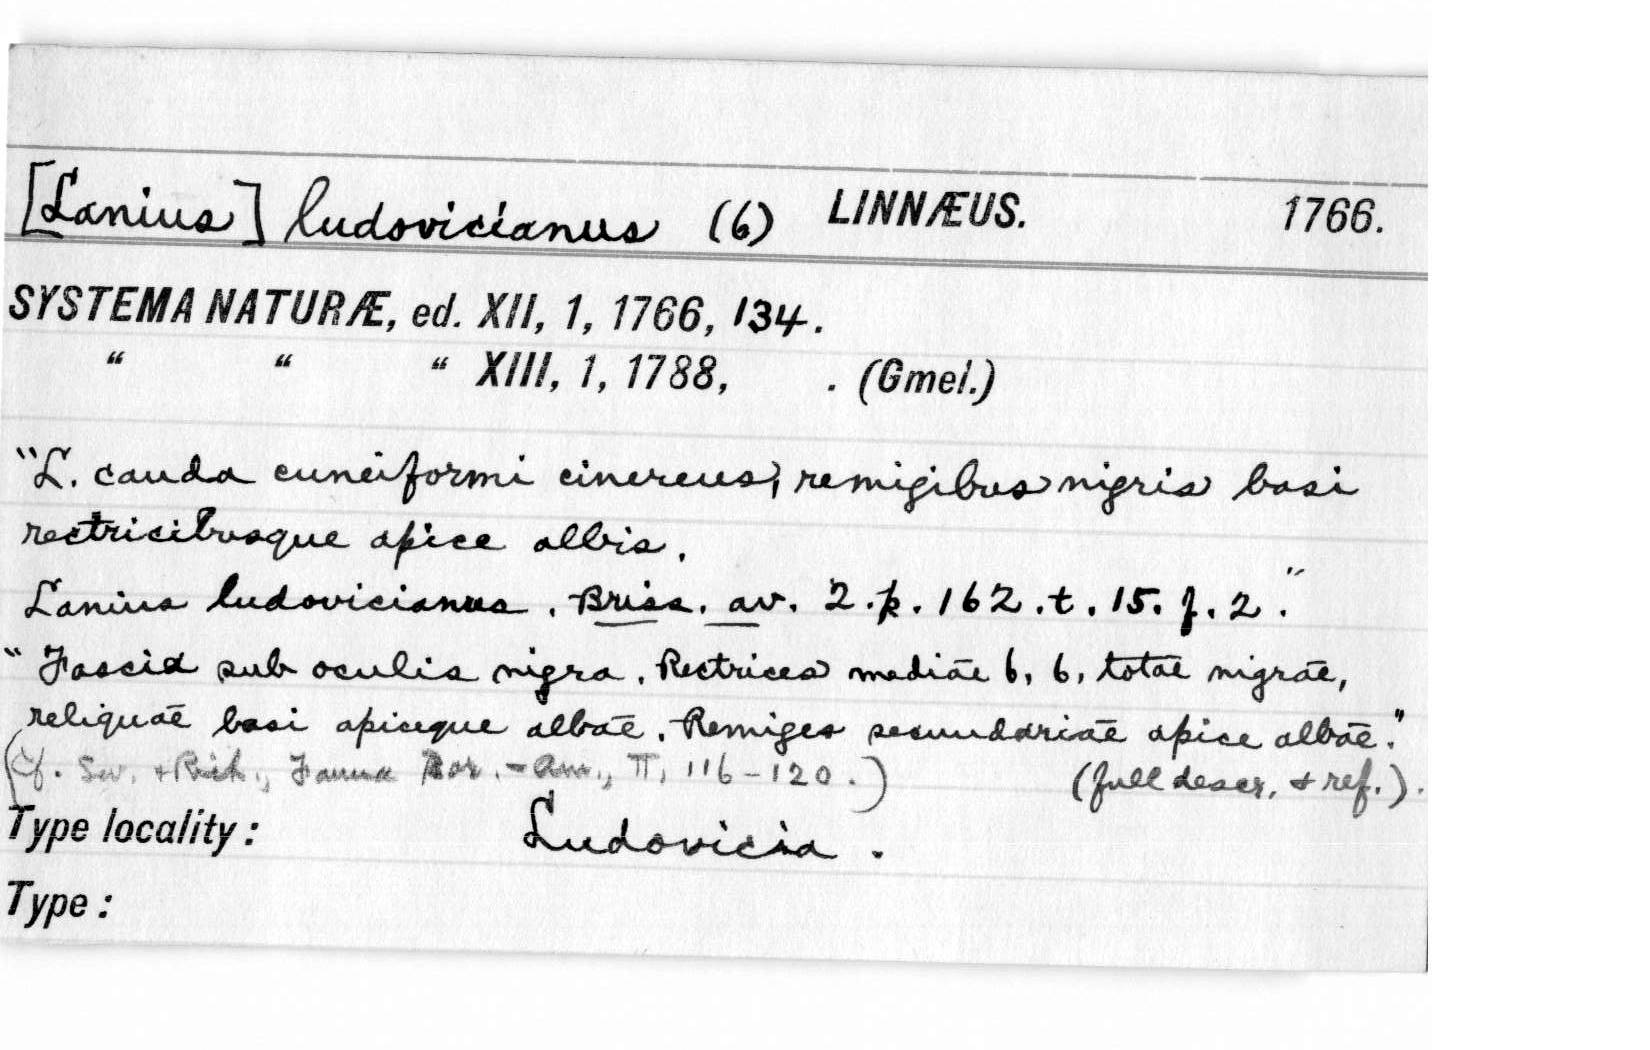 [Lanius] ludovicianus (6) LINNÆUS. 1766.
SYSTEMA NATURÆ, ed. XII, 1, 1766, 134.
“ “ “ XIII, 1, 1788, . (Gmel.)
"L. cauda cuneiformi cinereus, remigibus nigris basi
rectricibusque apice albis.
Lanius ludovicianus. Briss. av. 2. p. 162. t. 15. f. 2."
"Fascia sub oculis nigra. Rectrices mediae 6, 6, totae nigrae,
reliquae basi apiceque albae. Remiges secundariae apice albae."
(Cf. Sw. + Rich., Fauna Bor.-Am., II, 116-120.) (full descr. + ref.).
Type locality: Ludovicia.
Type: